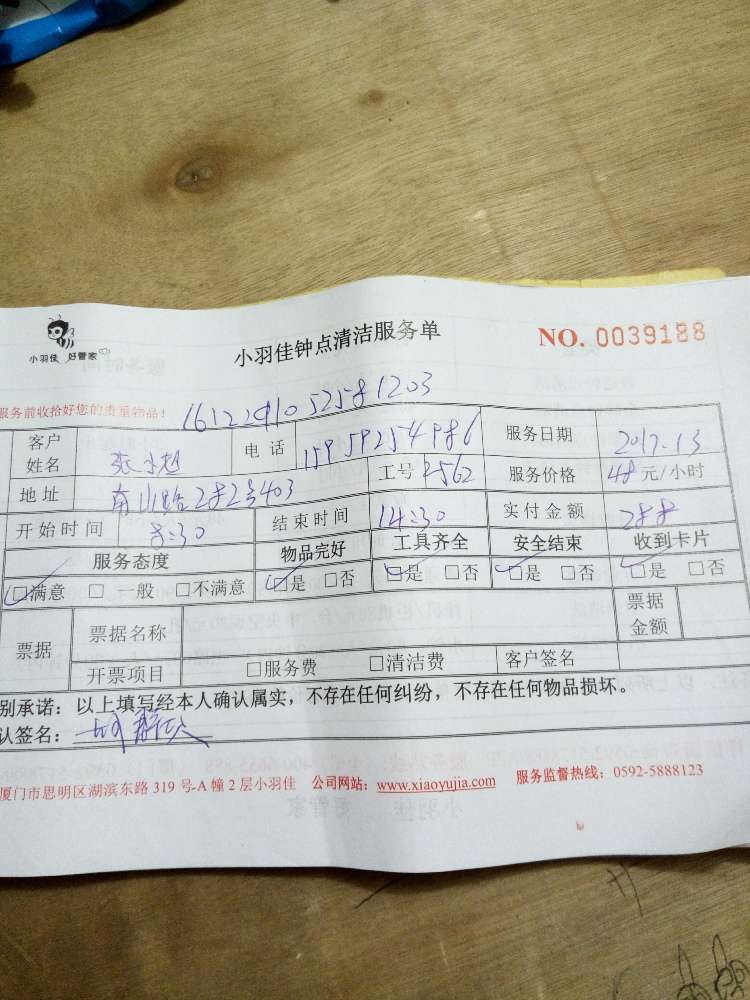 小羽佳 好管家
小羽佳钟点清洁服务单
NO. 0039188
服务前收拾好您的贵重物品!
161224105258 1203
客户姓名 电话 15959254986 服务日期 2017.1.3
地址 南山路282号403 工号 2562 服务价格 48元/小时
开始时间 8:30 结束时间 14:30 实付金额 288
服务态度 物品完好 工具齐全 安全结束 收到卡片
□满意 □一般 □不满意 □是 □否 □是 □否 □是 □否 □是 □否
票据 票据名称 票据金额
开票项目 □服务费 □清洁费 客户签名
别承诺：以上填写经本人确认属实，不存在任何纠纷，不存在任何物品损坏。
认签名：
厦门市思明区湖滨东路 319 号-A 幢 2 层小羽佳 公司网站：www.xiaoyujia.com 服务监督热线：0592-5888123